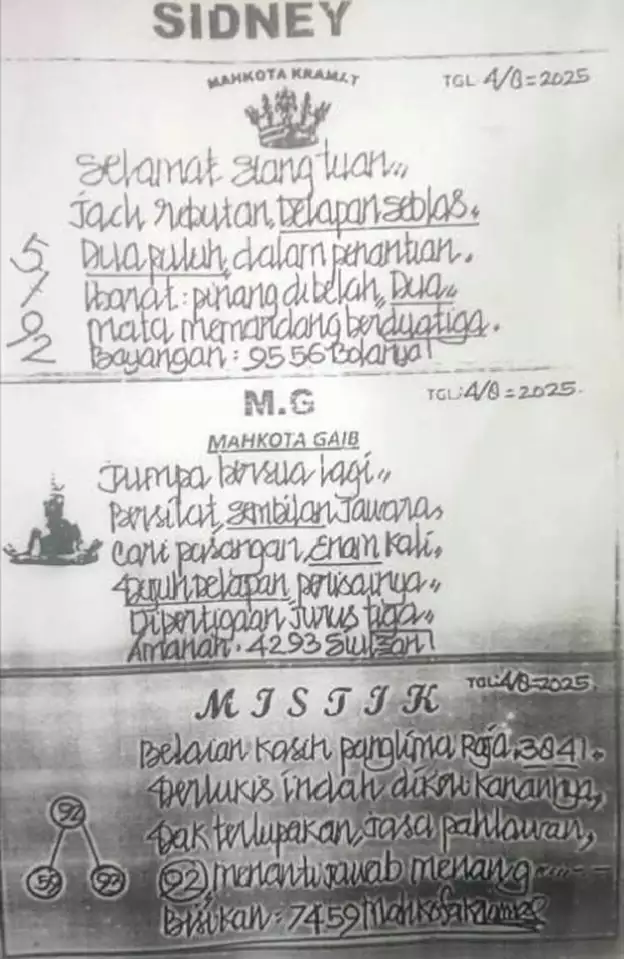 SIDNEY
MAHKOTA KRAMAT
TGL 4/8=2025
Selamat siang tuan,,
Jach rebutan, Delapan seblas.
5 Dua puluh, dalam penantian.
7 Ibarat: pinang dibelah, Dua,,
9 mata memandang berdua tiga.
2 Bayangan: 9556 Bolanya!
M.G
TGL:4/8=2025.
MAHKOTA GAIB
Jumpa bersua lagi,,
Bersilat, sembilan Jawara,
Cari pasangan, Enam Kali.
Tujuh Delapan, perisainya,,
Dipertigaan jurus tiga,,
Amanah. 4293
MISTIK
TGL:4/8=2025.
Belaian kasih panglima Raja.3841.
Terlukis indah dikiri kanannya,
92
Tak terlupakan, Jasa pahlawan,
59 92 (92), menanti jawab menang
Bisikan: 7459 Mahkota kramat